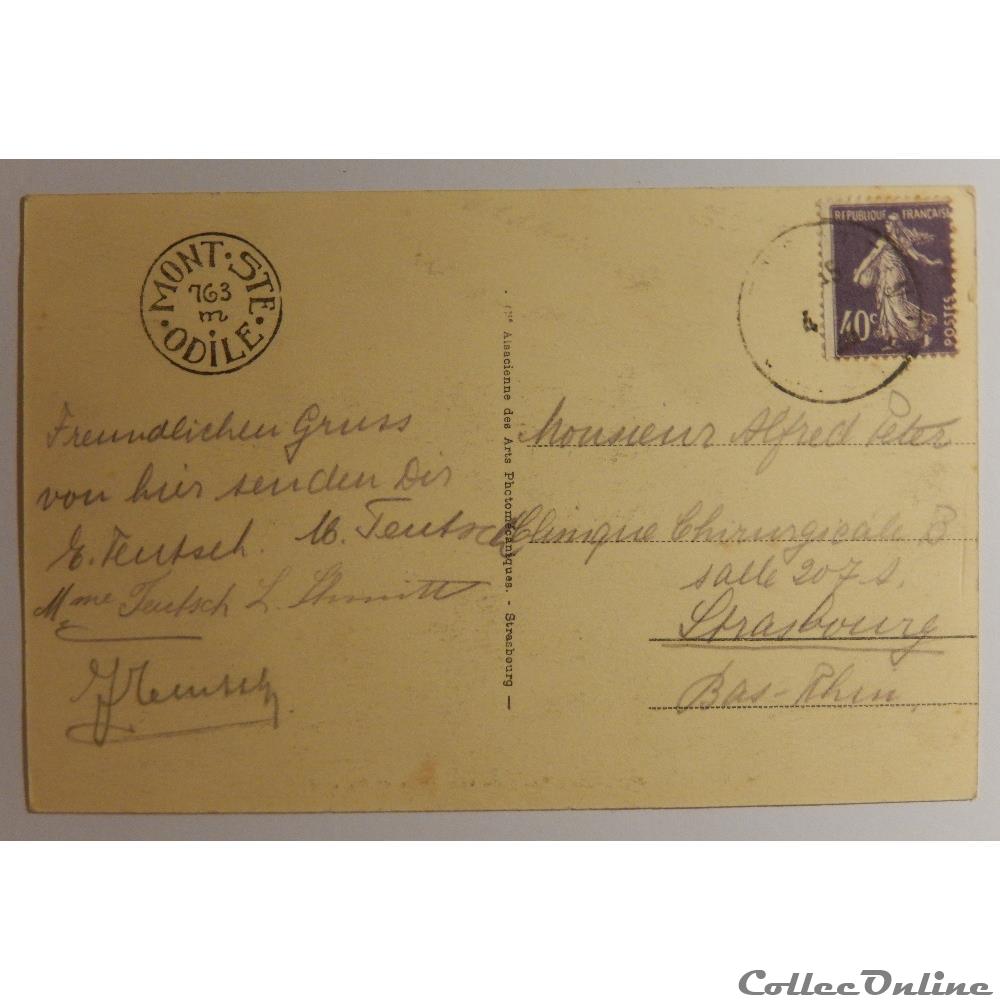 MONT · STE · ODILE ·
763
m
REPUBLIQUE FRANÇAISE
40c
POSTES
Freundlichen Gruss
von hier senden Dir
E. Teutsch. M. Teutsch
Mme Teutsch L. Schmitt.
Monsieur Alfred Peter
Clinique Chirurgicale B
salle 207
Strasbourg
Bas-Rhin
Alsacienne des Arts Photomécaniques. - Strasbourg
CollecOnline